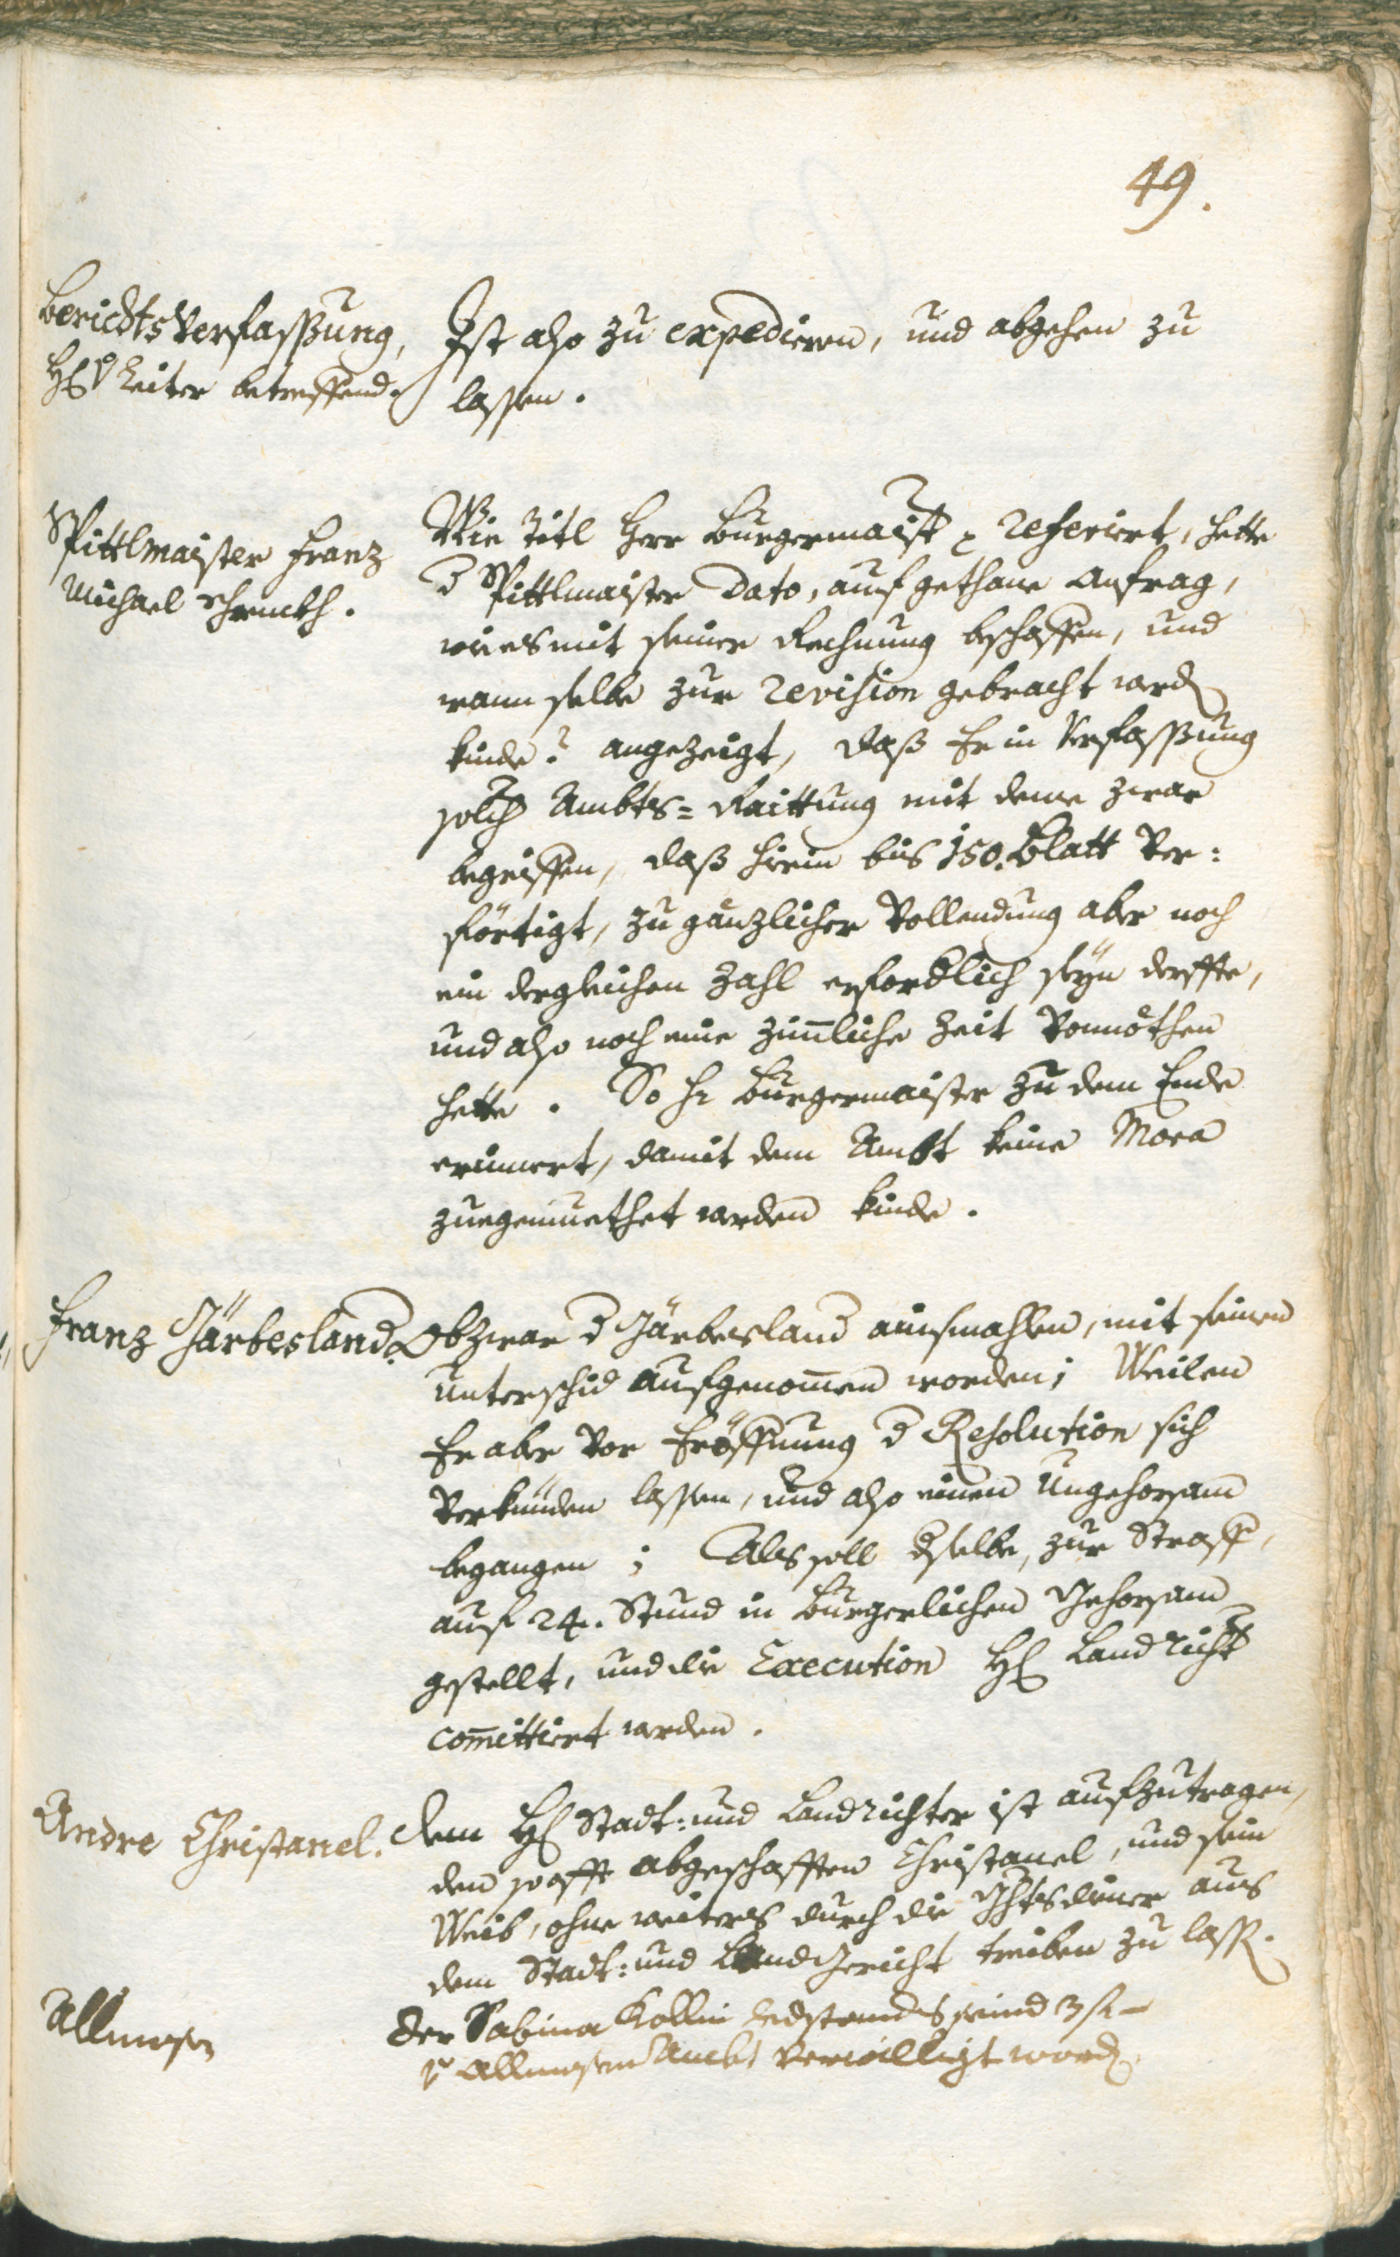 49.
Berichts Verfassung,
H: Leiter betreffend.
Ist also zu expedieren, und abgehen zu
lassen.
Spittlmaister Franz
Michael
Wie Titl Herr Burgermaist referiert, hette
d Spittlmaister Dato, auf gethane Anfrag,
wie es mit seiner Rechnung beschaffen, und
wann selbe zur revision gebracht werd
kinde? angezeigt, daß Er in Verfassung
solch Ambts=Raittung mit deme zwar
begriffen, daß hierin bis 150. Blatt Ver:
förtigt, zu gänzlicher Vollendung aber noch
ein dergleichen Zahl erfordlich seyn derffte,
und also noch eine zimliche Zeit Vonnöthen
hette. So Hr Burgermaister zu dem Ende
erinnert, damit dem Ambt keine Mora
zuegemuethet werden kinde.
Franz Järbesland.
Obzwar d Järbesland ainsmahlen, mit seinen
unterschid aufgenomen worden; Weilen
Er aber Vor Eröffnung d Resolution sich
Verkünden lassen, und also einen Ungehorsam
begangen; Als soll dselbe, zur Straff,
auf 24. Stund in Burgerlichen Gehorsam
gestellt, und die Execution H: Landricht
comittiert werden.
Andre Christanel.
Dem H: Stadt: und Landrichter ist aufzutragen,
den so offt abgeschafften Christanel, und sein
Weib, ohne weiters durch die Ghtsdiener aus
dem Stadt: und Landgericht treiben zu lass.
Allmosen
Der Sabina Kollin seind 3 fl
Allmosen Ambt Verwilligt word.